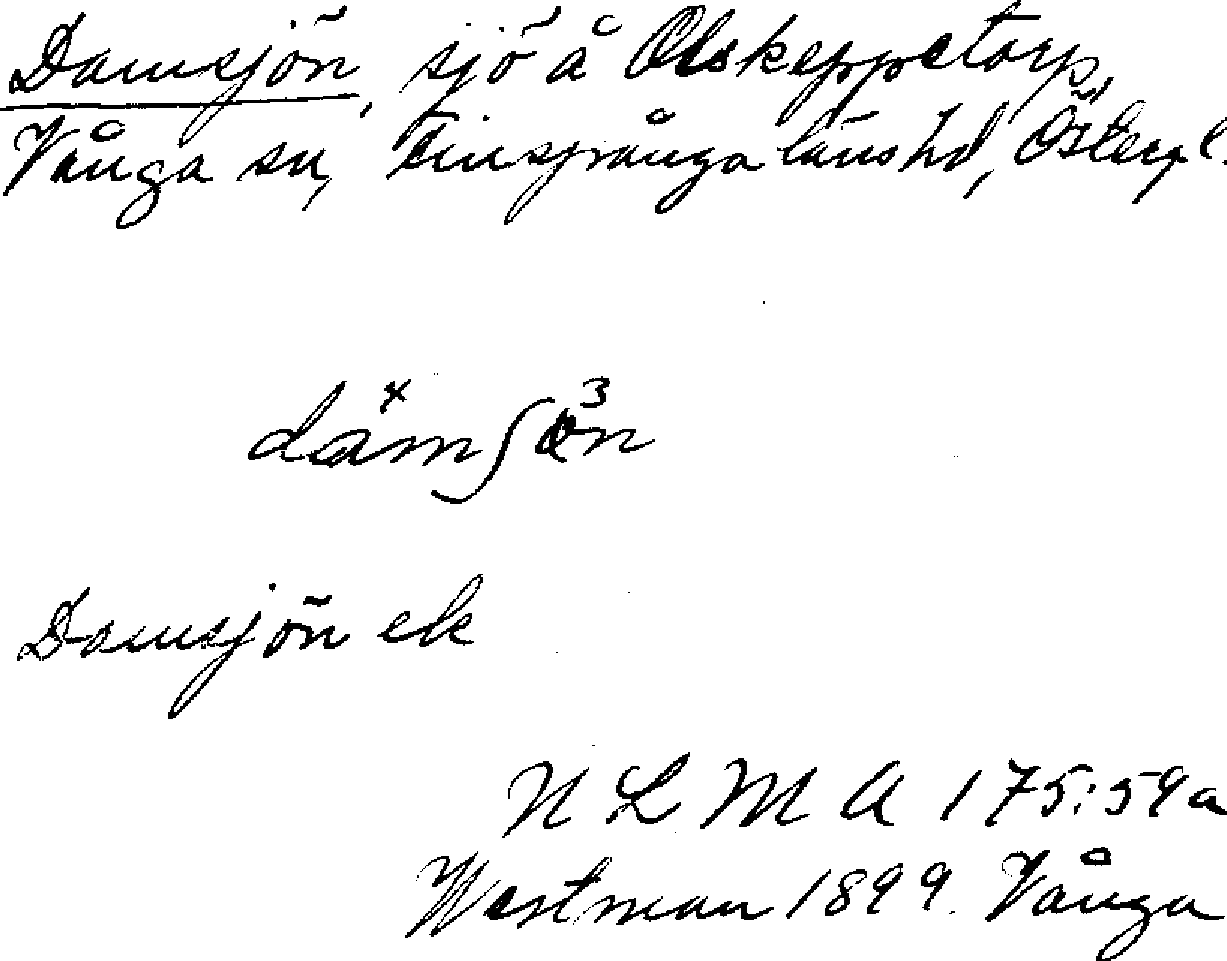 Damsjön, sjö å Olskeppetorp,
Vånga sn, Finspånga läns hd, Östergl.
dämʃön
Damsjön ek
N L M A 175:59a
Westman 1899. Vånga